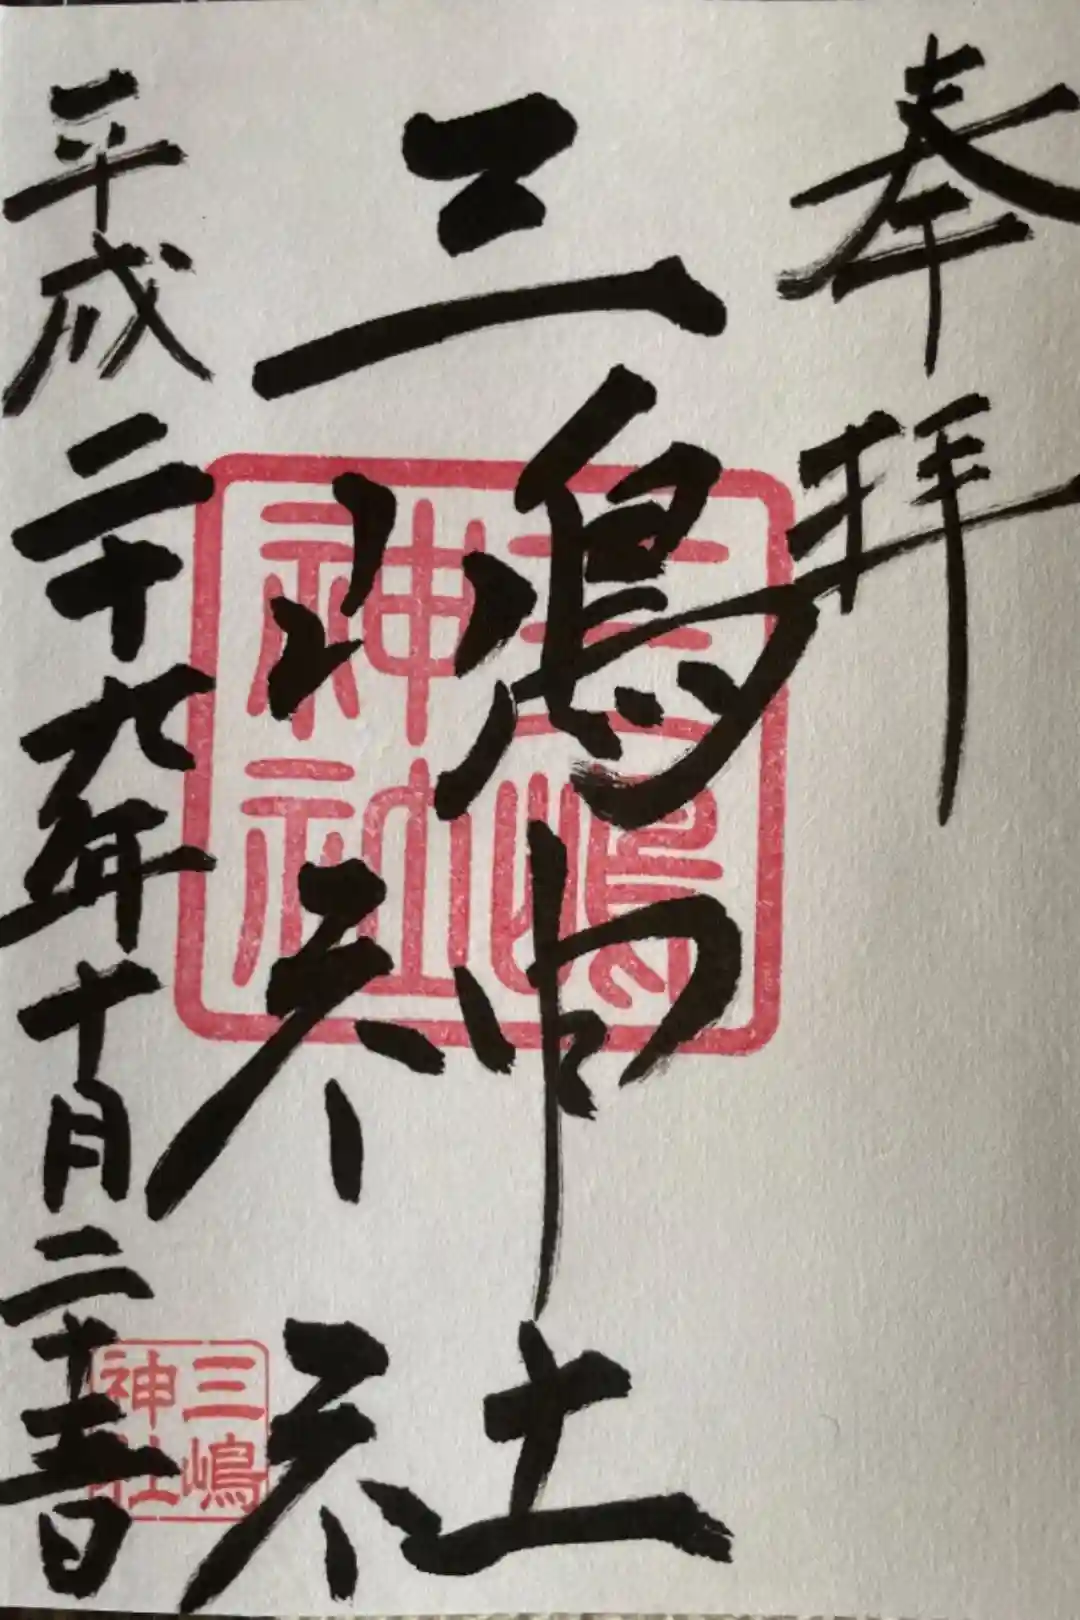 奉拝
三嶋神社
平成二十九年十月二十五日
三嶋
神社
三嶋
神社